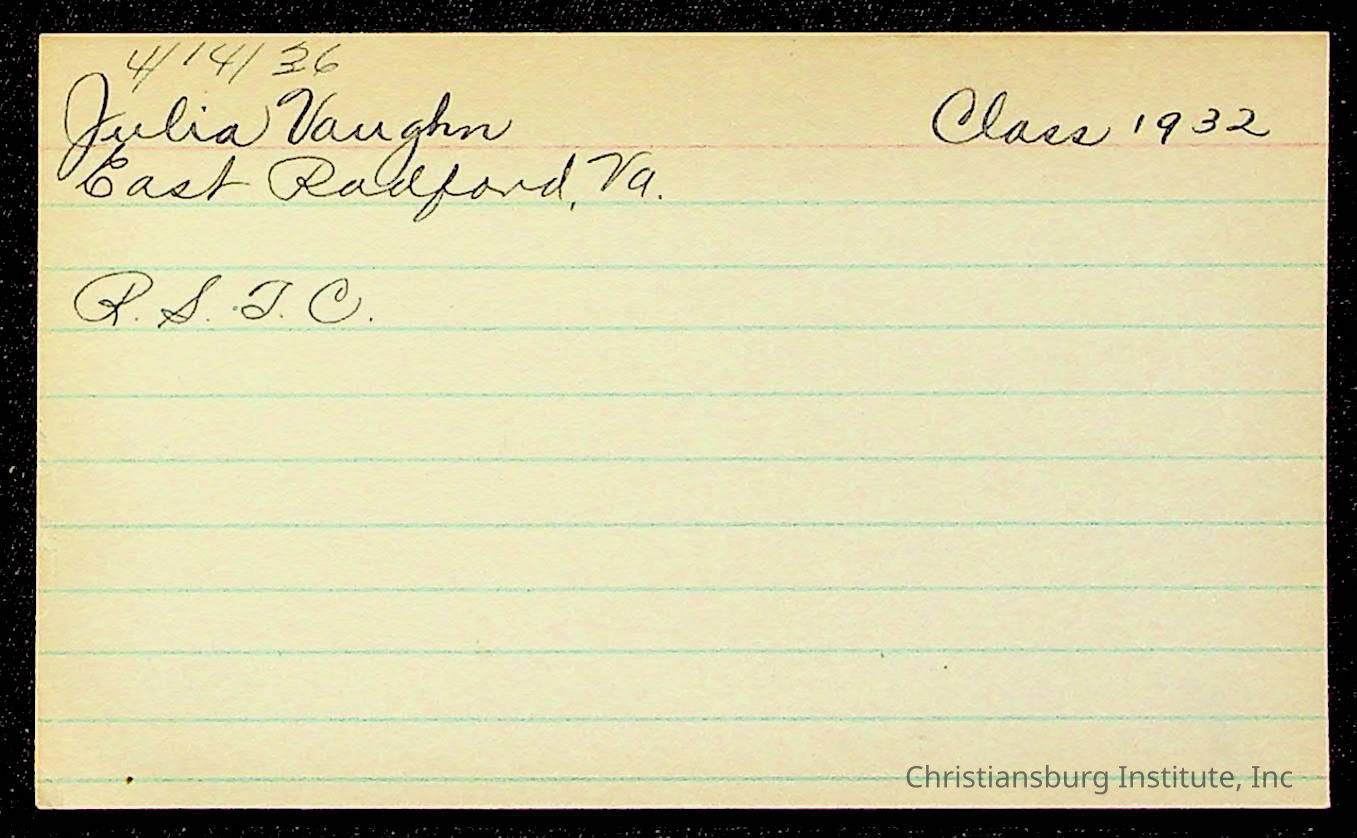 4/14/36
Julia Vaughn Class 1932
East Radford, Va.
R. S. T. C.
Christiansburg Institute, Inc